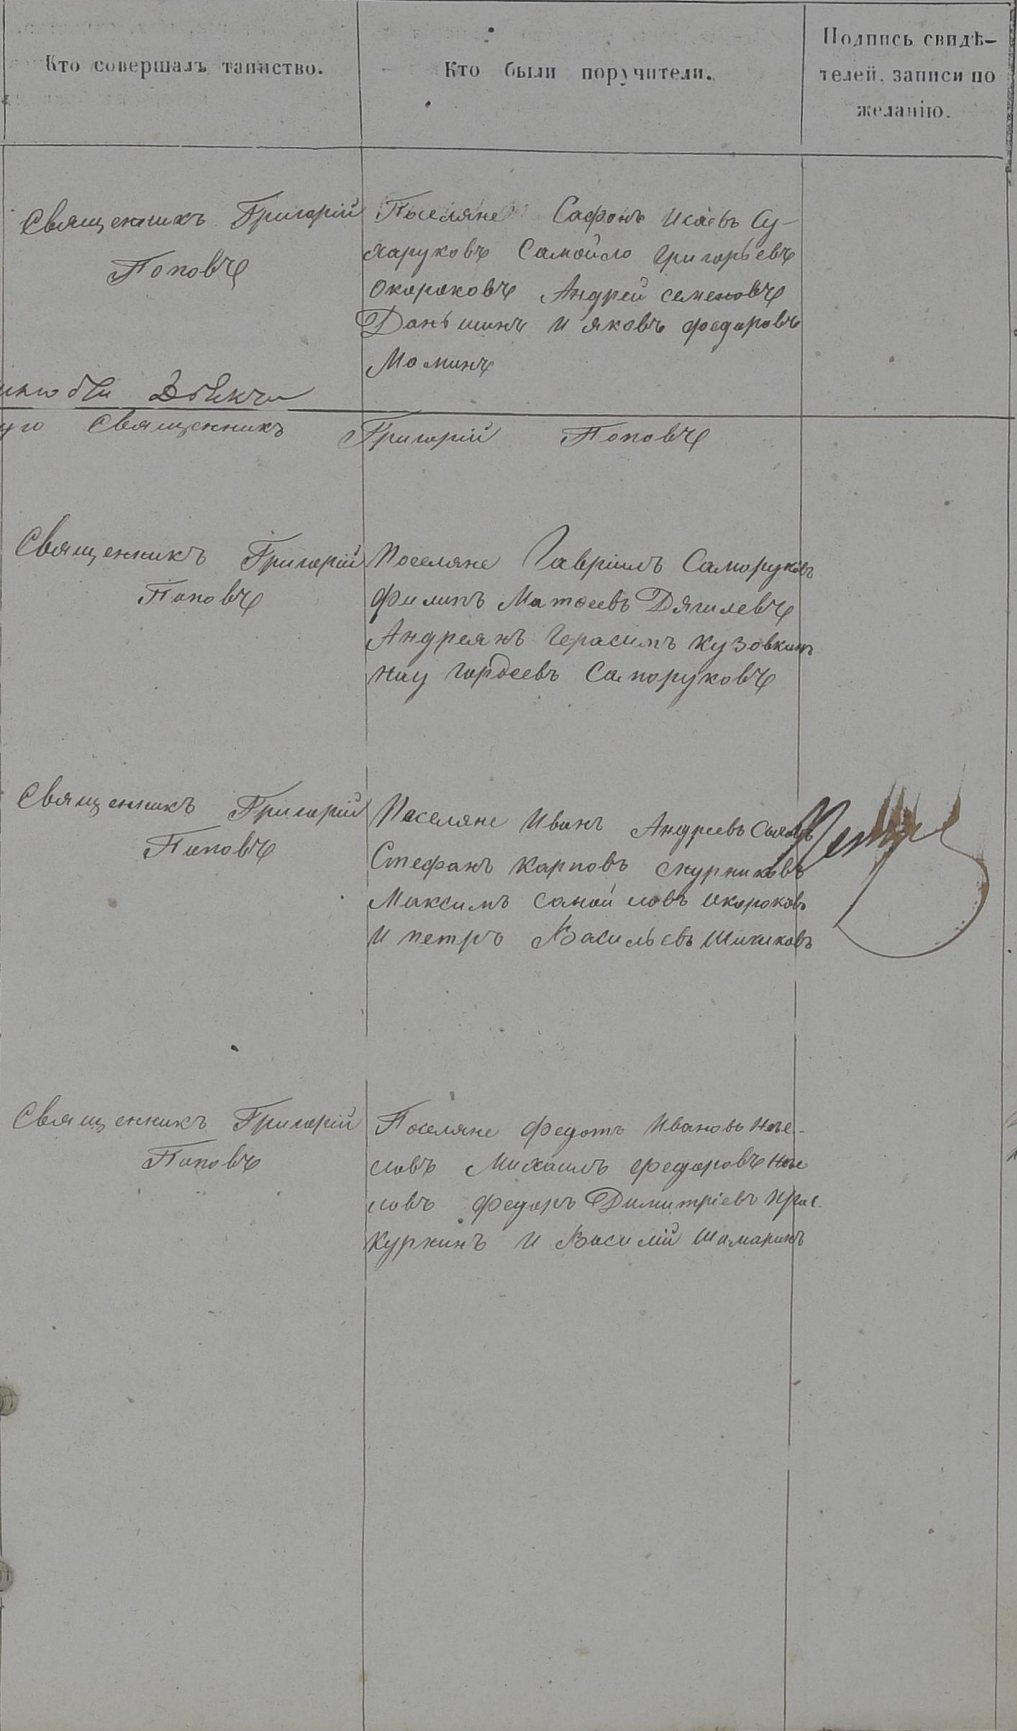 Кто совершалъ таинство.
Кто были поручители.
Подпись свидѣ-
телей, записи по
желанію.
Священникъ Григорій
Поповъ
Поселяне Сафонъ Исаевъ Су-
харуковъ Самойло Григорьевъ
Окороковъ Андрей Семеновъ
Даньшинъ и Яковъ Федоровъ
Моминъ
Священникъ Григорій Поповъ
Священникъ Григорій
Поповъ
Поселяне Гавріилъ Саморуковъ
Филипъ Матвеевъ Дягилевъ
Андреянъ Герасимъ Кузовкинъ
Гордеевъ Саморуковъ
Священникъ Григорій
Поповъ
Поселяне Иванъ Андреевъ
Стефанъ Карповъ
Максимъ Самойловъ Окороковъ
и Петръ Васильевъ
Священникъ Григорій
Поповъ
Поселяне Федотъ Ивановъ
Михаилъ Федоровъ
Федоръ Димитріевъ
Куркинъ и Василій Шамаринъ